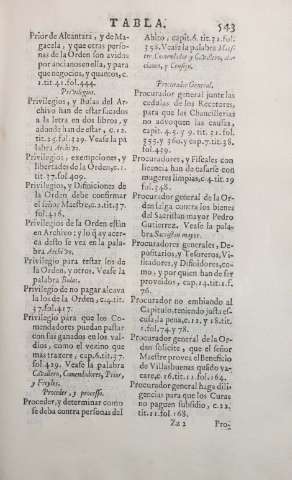 TABLA.
543
Prior de Alcantara, y de Magacela, y que otras personas de la Orden son avidos por ancianos en ella, y para que negocios, y quantos, c.
1.tit.42.fol.444.
Privilegios.
Privilegios, y Bulas del Archivo han de estar sacados
a la letra en dos libros, y
adonde han de estar, c.12.
tit.25.fol.329. Vease la palabra
Archivo.
Privilegios, exempciones, y
libertades de la Orden, c.1.
tit.37.fol.409.
Privilegios, y Difiniciones de
la Orden debe confirmar
el señor Maestre, c.2.tit.37.
fol.416.
Privilegios de la Orden estèn
en Archivo; y lo q̃ ay acerca
desto se vea en la palabra
Archivo.
Privilegio para testar los de
la Orden, y otros. Vease la
palabra Bulas.
Privilegio de no pagar alcavala
los de la Orden, c.4.tit.
37.fol.417.
Privilegio para que los Comendadores
puedan pastar
con sus ganados en los valdios,
como el vezino que
mas traxere, cap.6.tit.37.
fol.429. Vease la palabra
Cavallero, Comendadores, Prior,
y Freyles.
Proceder, y processo.
Proceder, y determinar como
se deba contra personas del
Abito, cap.6.tit.21.fol.
358. Vease la palabra Maestre,
Comendador y Cavallero,
y Consejo.
Procurador General.
Procurador general junte las
cedulas de los Recetores,
para que los Chancillerias
no advoquen las causas,
capit.4.5. y 9. tit.21.fol.
355. y 360. y cap.7.tit.38.
fol.429.
Procuradores, y Fiscales con
licencia han de casarse con
mugeres limpias, c.4.tit.19
fol.348.
Procurador general de la Orden
salga contra los bienes
del Sacristan mayor Pedro
Gutierrez. Vease la palabra
Sacristan mayor.
Procuradores generales, Depositarios,
y Tesoreros, Visitadores,
y Difinidores, como,
y por quien han de ser
proveidos, cap.14.tit.1.f.
76.
Procurador no embiando al
Capitulo, teniendo justa escusa,
la pena, c.12. y 18.tit.
1.fol.74.y 78.
Procurador general de la Orden
solicite, que el señor
Maestre provea el Beneficio
de Villasbuenas quãdo vacare,
c.16.tit.11.fol.164.
Procurador general haga diligencias
para que los Curas
no paguen subsidio, c.22.
tit.11.fol.168.
Zz 2
Pro-